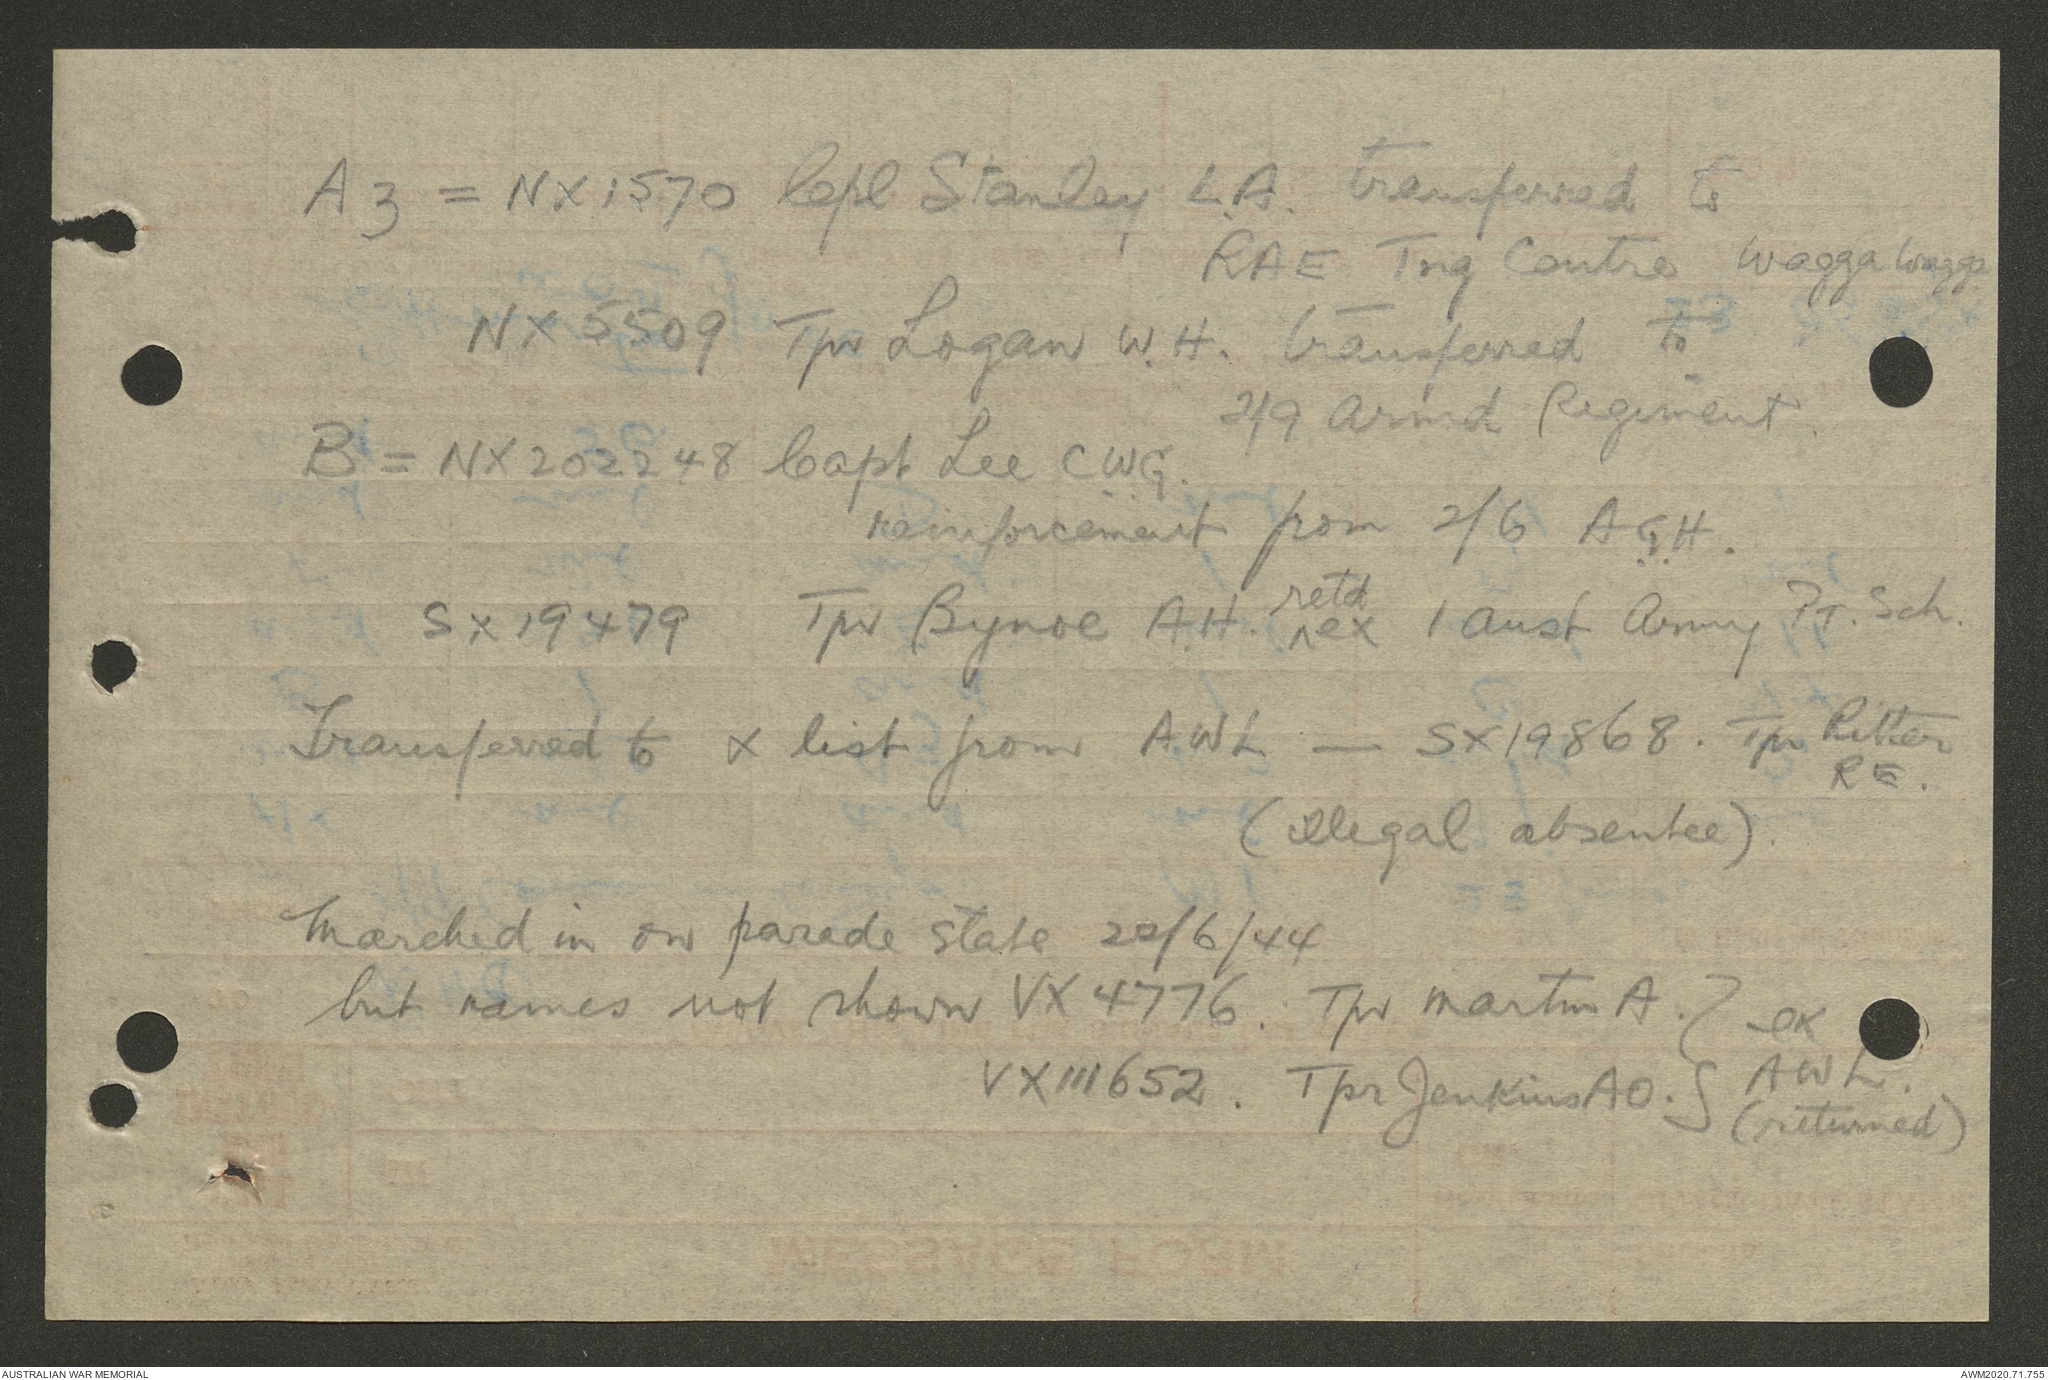 A3 = NX1570 Cpl Stanley L.A. transferred to
RAE Tng Centre Wagga Wagga
NX5509 Tpr Logan W.H. transferred to
2/9 Armd Regiment.
B = NX202248 Capt Lee C.W.G.
reinforcement from 2/6 A.G.H.
SX19479 Tpr Bynoe A.H. retd ex 1 Aust Army P.T. Sch.
Transferred to X list from AWL — SX19868. Tpr Ritter
RE.
(illegal absentee).
Marched in on parade state 22/6/44
but names not shown VX4776. Tpr Martin A. } ex
VX111652. Tpr Jenkins AO. } AWL.
(returned)
MESSAGE FORM
AUSTRALIAN WAR MEMORIAL
AWM2020.71.755